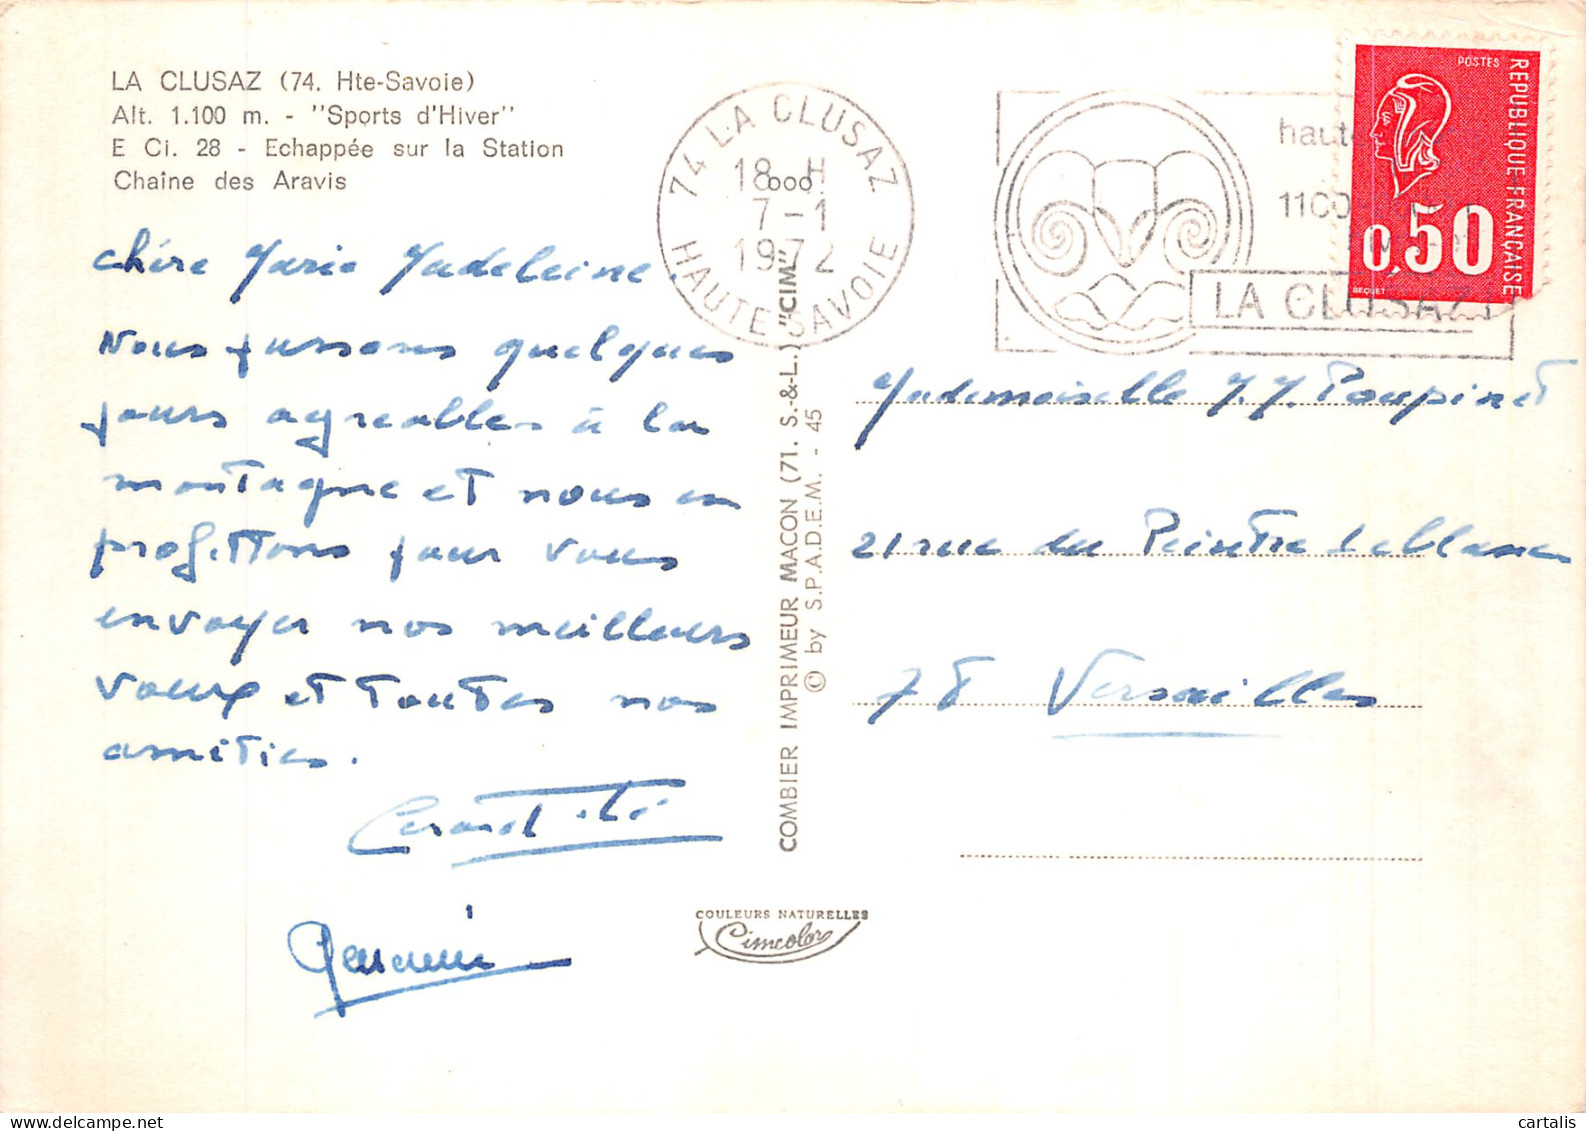 LA CLUSAZ (74. Hte-Savoie)
Alt. 1.100 m. - "Sports d'Hiver"
E Ci. 28 - Echappée sur la Station
Chaîne des Aravis
chère Marie Madeleine.
Nous passons quelques
jours agréables à la
montagne et nous en
profittons pour vous
envoyer nos meilleurs
vœux et toutes nos
amitiés.
COMBIER IMPRIMEUR MACON (71. S.-&-L.) "CIM"
© by S.P.A.D.E.M. - 45
COULEURS NATURELLES
Cimcolor
74 LA CLUSAZ
18 H
7-1
1972
HAUTE-SAVOIE
haute
1100
LA CLUSAZ
POSTES
REPUBLIQUE FRANÇAISE
0,50
BEQUET
Mademoiselle M. M. Poupinet
21 rue du Peintre Leblanc
78 Versailles
cartalis
delcampe.net